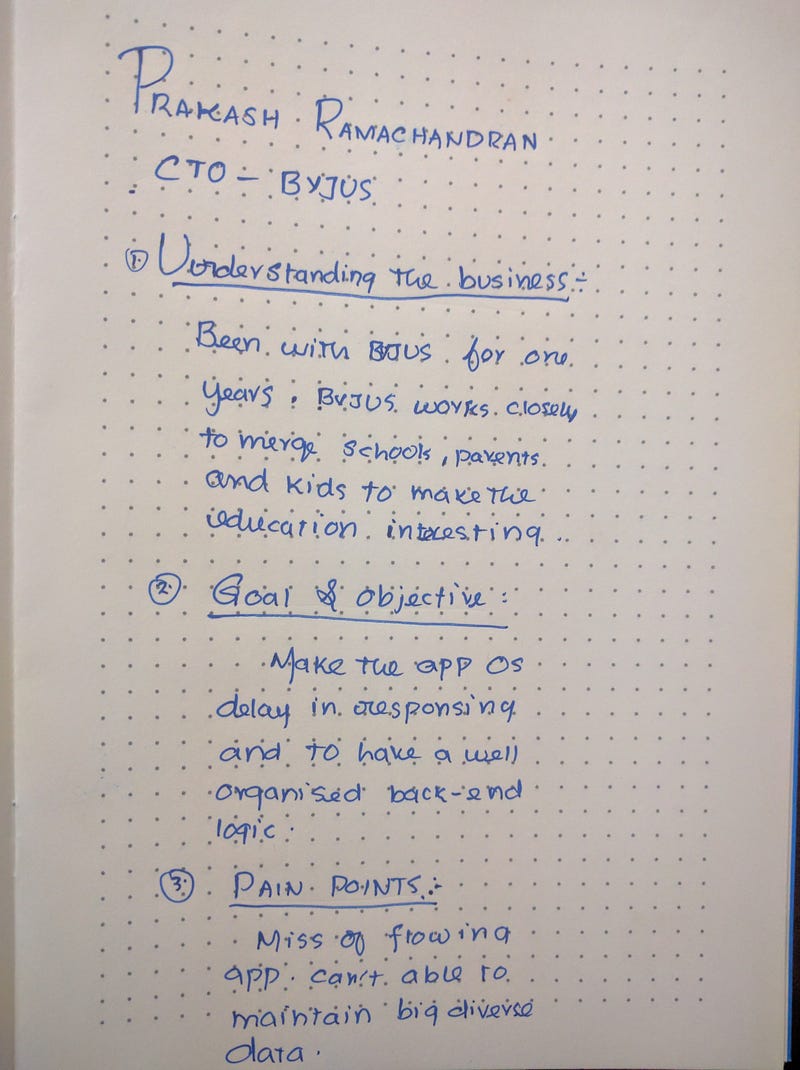 PRAKASH RAMACHANDRAN
CTO - BYJUS
1. Understanding the business:-
Been with BYJUS for one
years. BYJUS works closely
to merge schools, parents
and kids to make the
education interesting..
2. Goal & objective:
Make the app 0s
delay in responsing
and to have a well
organised back-end
logic.
3. PAIN POINTS:-
Miss of flowing
app can't able to
maintain big diverse
data.